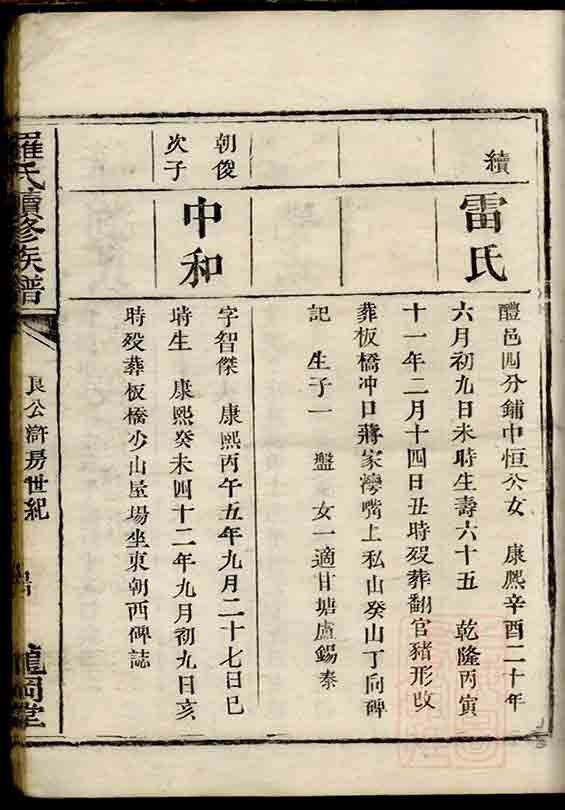 續
雷氏
醴邑四分鋪中恒公女　康熙辛酉二十年
六月初九日未時生壽六十五　乾隆丙寅
十一年二月十四日丑時歿葬翻官豬形改
葬板橋冲口蔣家灣嘴上私山癸山丁向碑
記　生子一　盤　女一適甘塘盧錫泰
朝俊
次子
中和
字智傑　康熙丙午五年九月二十七日巳
時生　康熙癸未四十二年九月初九日亥
時歿葬板橋少山屋場坐東朝西碑誌
羅氏續修族譜
良公滸房世紀
龍岡堂